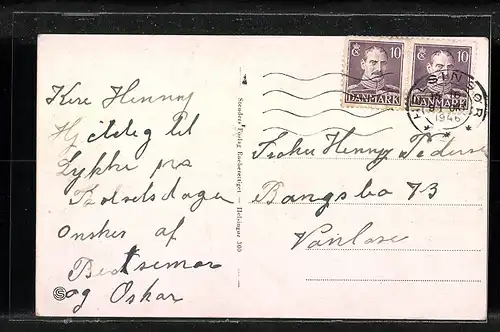 Kære Henny
Hjertelig til
Lykke paa
Fødselsdagen
Ønskes af
og Oskar
Stenders Forlag Eneberettiget — Helsingør 309
10
10
DANMARK
DANMARK
HELSINGØR
1946
Frøken Henny Pedersen
Bangsbo 73
Vanløse